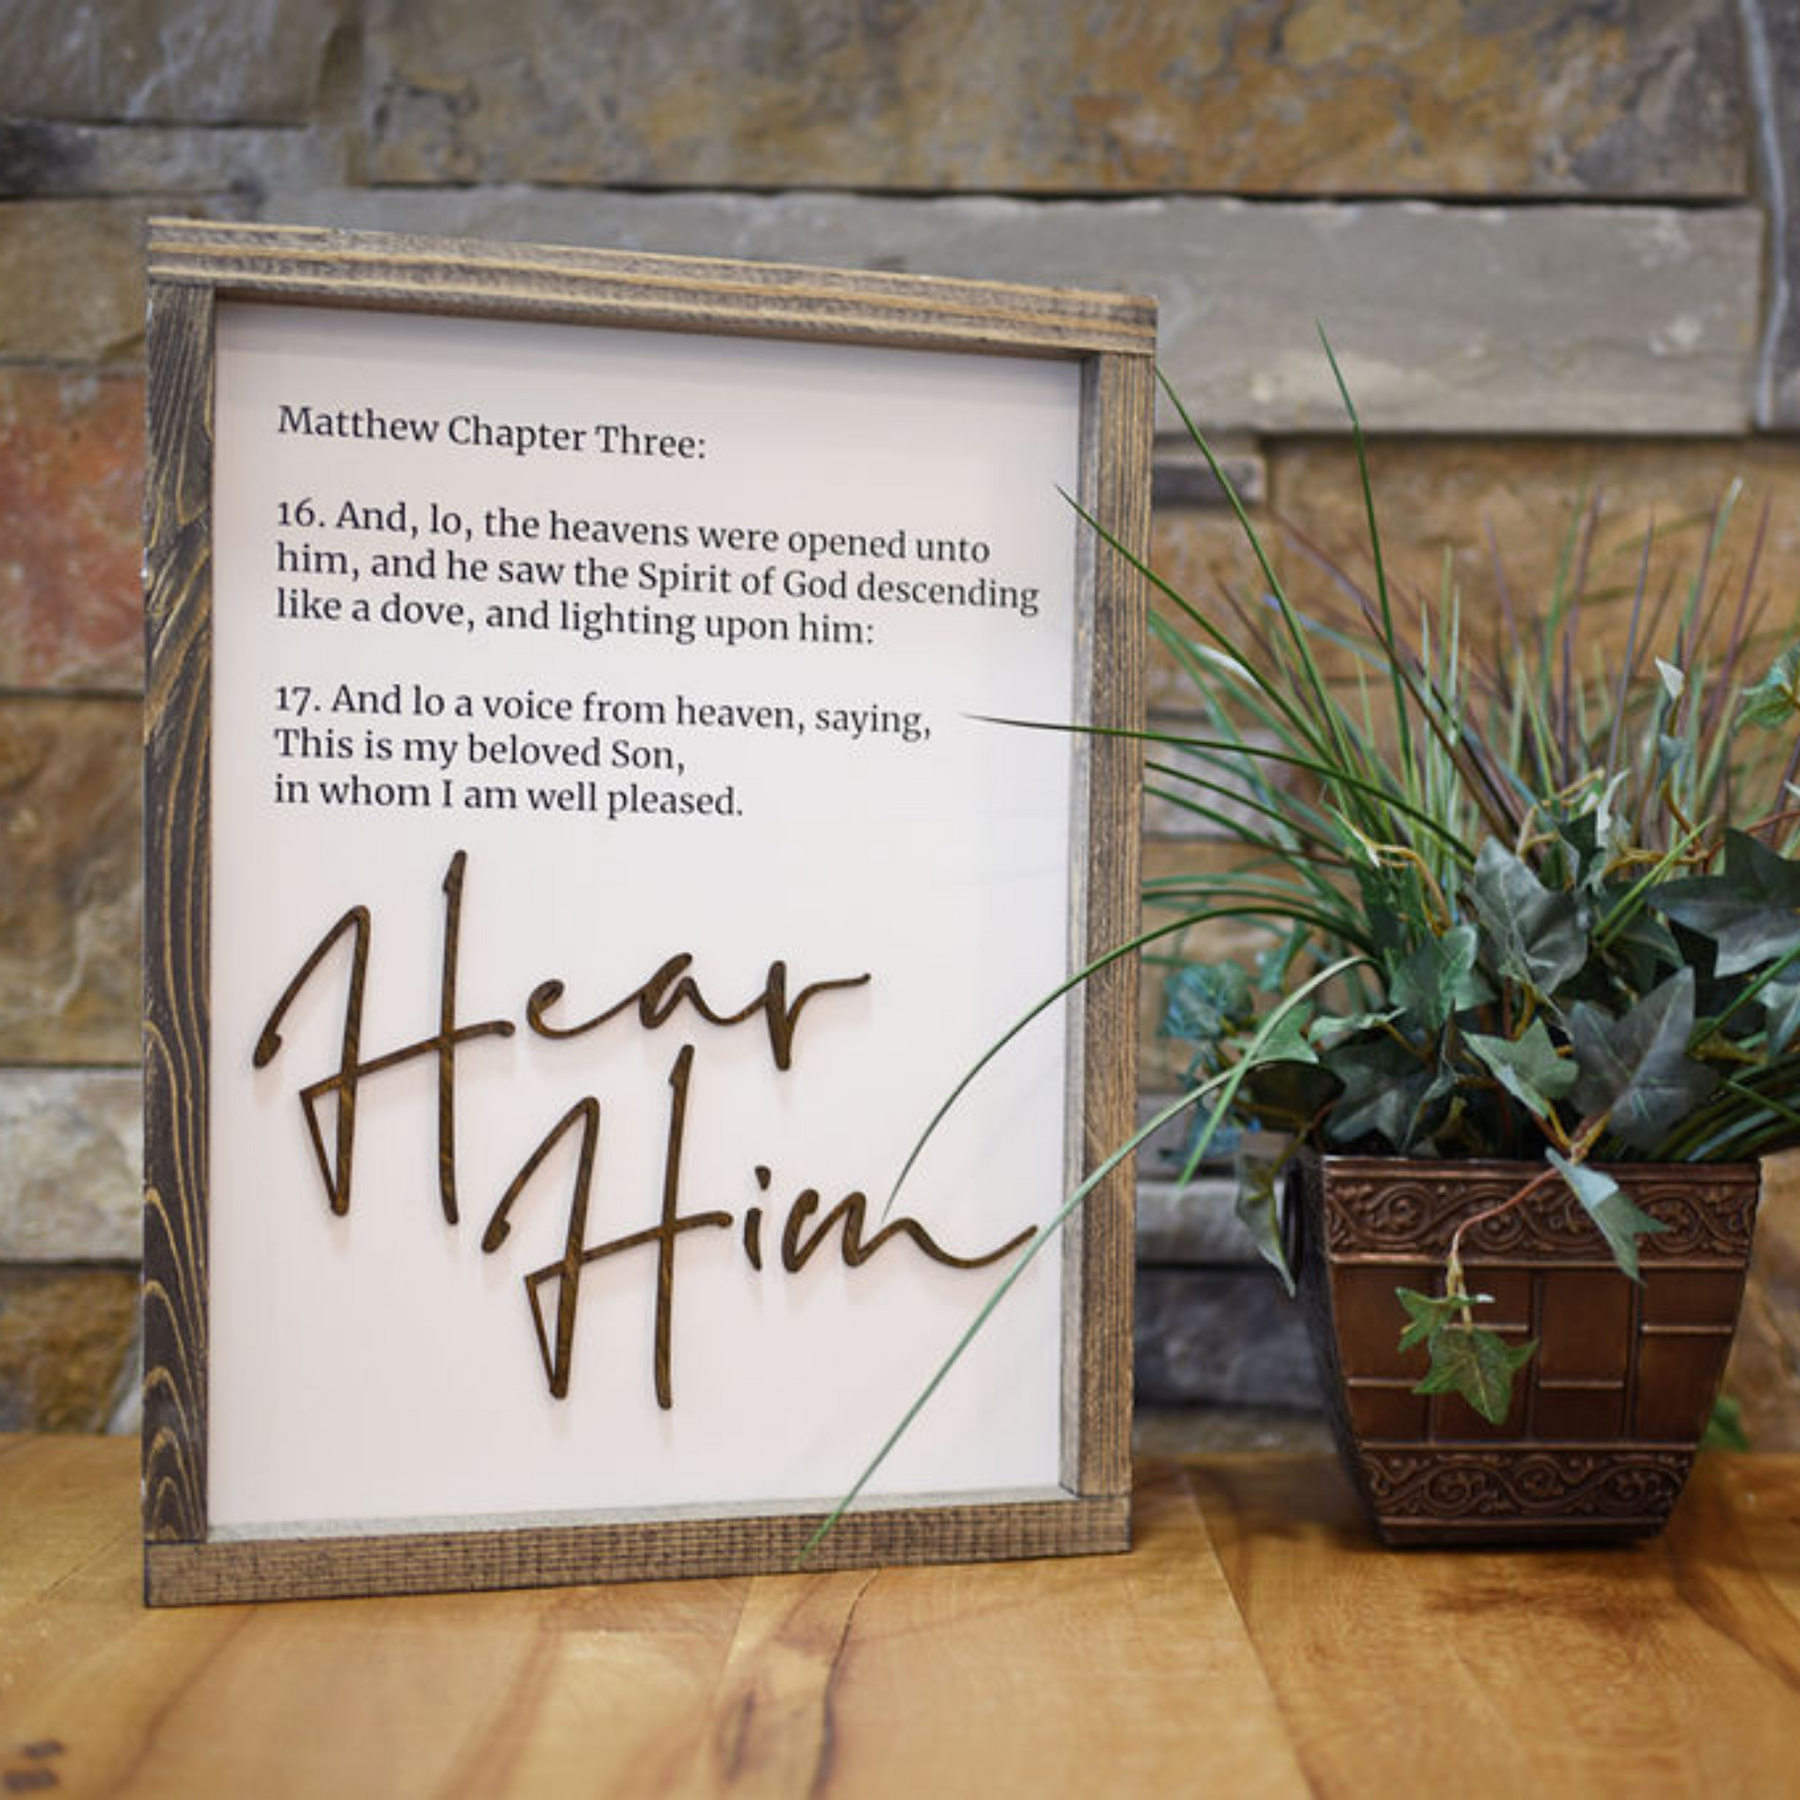 Matthew Chapter Three:
16. And, lo, the heavens were opened unto
him, and he saw the Spirit of God descending
like a dove, and lighting upon him:
17. And lo a voice from heaven, saying,
This is my beloved Son,
in whom I am well pleased.
Hear
Him